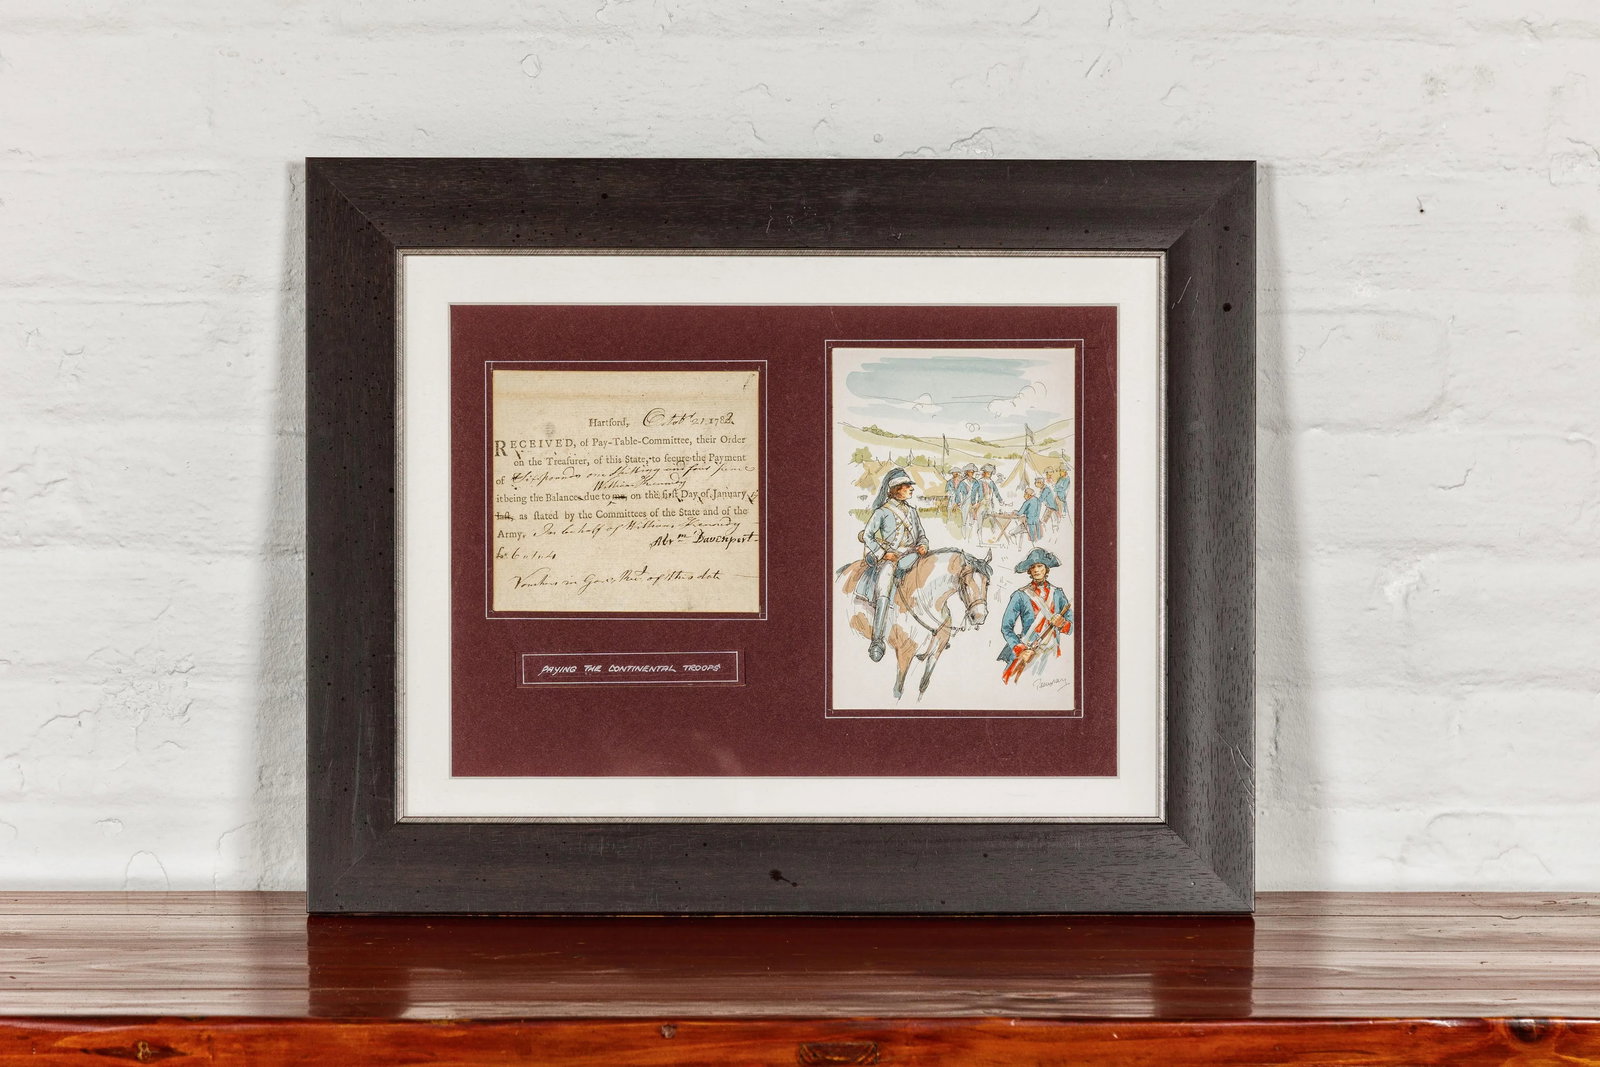 Hartford, Octobr 21 1782
RECEIVED, of Pay-Table-Committee, their Order
on the Treasurer, of this State, to secure the Payment
of Six pounds one shilling and four pence
William Kennedy
it being the Balance due to me, on the first Day of January
last, as stated by the Committees of the State and of the
Army, for behalf of William Kennedy
Davenport
£6..1..4
of this date
PAYING THE CONTINENTAL TROOPS